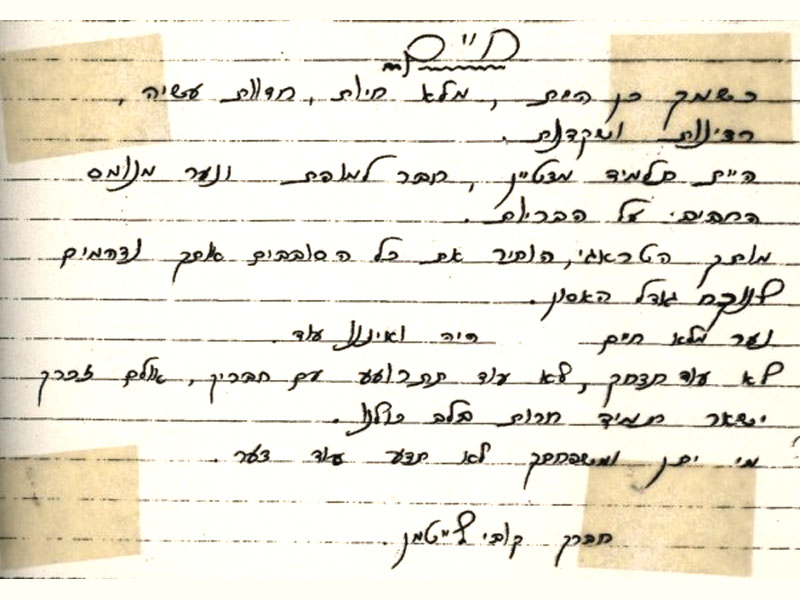 חיים
כשמך כן היית, מלא חיות, חדוות עשיה,
רצינות ושקדנות.
היית תלמיד מצטיין, חבר למופת ונער מנומס
החביב על הבריות.
מותך הטראגי, הותיר את כל הסובבים אותך נדהמים
לנוכח גודל האסון.
נער מלא חיים היה ואיננו עוד.
לא עוד תצחק, לא עוד תתרועע עם חבריך, אולם זכרך
ישאר תמיד חרות בלב כולנו.
מי יתן ומשפחתך לא תדע עוד צער.
חברך קובי לייטמן.